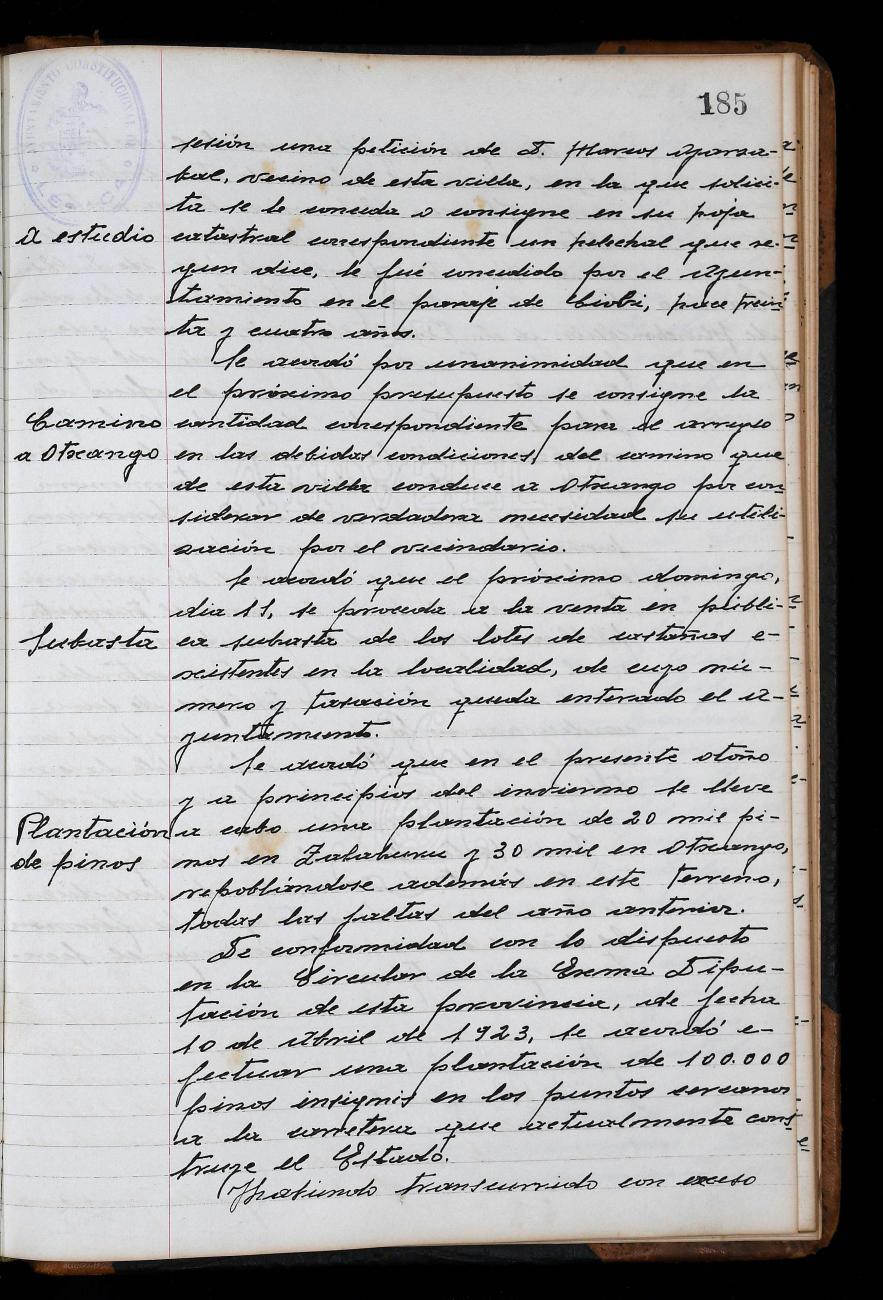 185
AYUNTAMIENTO CONSTITUCIONAL DE
LESACA
sesión una petición de D. Marcos Aparsa-
bal, vecino de esta villa, en la que solici-
ta se le conceda o consigne en su hoja
A estudio
catastral correspondiente un helechal que se-
gun dice, le fué concedido por el Ayun-
tamiento en el paraje de Biobi, hace trein-
ta y cuatro años.
Se acordó por unanimidad que en
el próximo presupuesto se consigne la
Camino
cantidad correspondiente para el arreglo
a Otxango
en las debidas condiciones, del camino que
de esta villa conduce a Otxango por con-
siderar de verdadera necesidad su utili-
zación por el vecindario.
Se acordó que el próximo domingo,
dia 11, se proceda a la venta en públi-
Subasta
ca subasta de los lotes de castaños e-
xistentes en la localidad, de cuyo nú-
mero y tasación queda enterado el A-
yuntamiento.
Se acordó que en el presente otoño
y a principios del invierno se lleve
Plantación
a cabo una plantación de 20 mil pi-
de pinos
nos en Zalaburu y 30 mil en Otxango,
repoblándose además en este terreno,
todas las faltas del año anterior.
De conformidad con lo dispuesto
en la Circular de la Excma Dipu-
tación de esta provincia, de fecha
10 de Abril de 1923, se acordó e-
fectuar una plantación de 100.000
pinos insignis en los puntos cercanos
a la carretera que actualmente cons-
truye el Estado.
Habiendo transcurrido con exceso